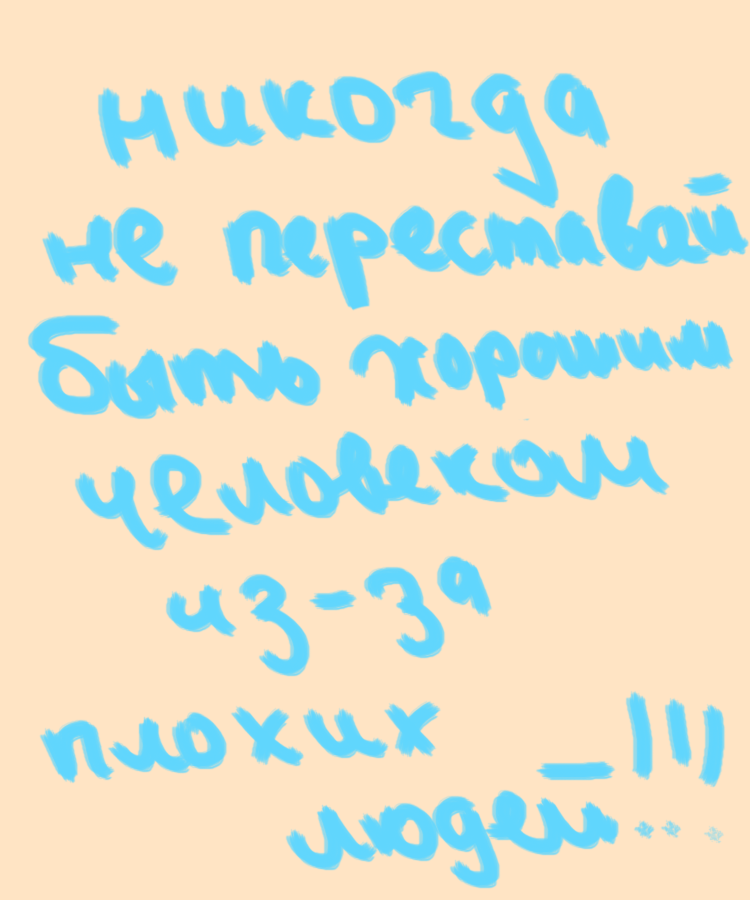 никогда
не переставай
быть хорошим
человеком
из-за
плохих
людей!!!